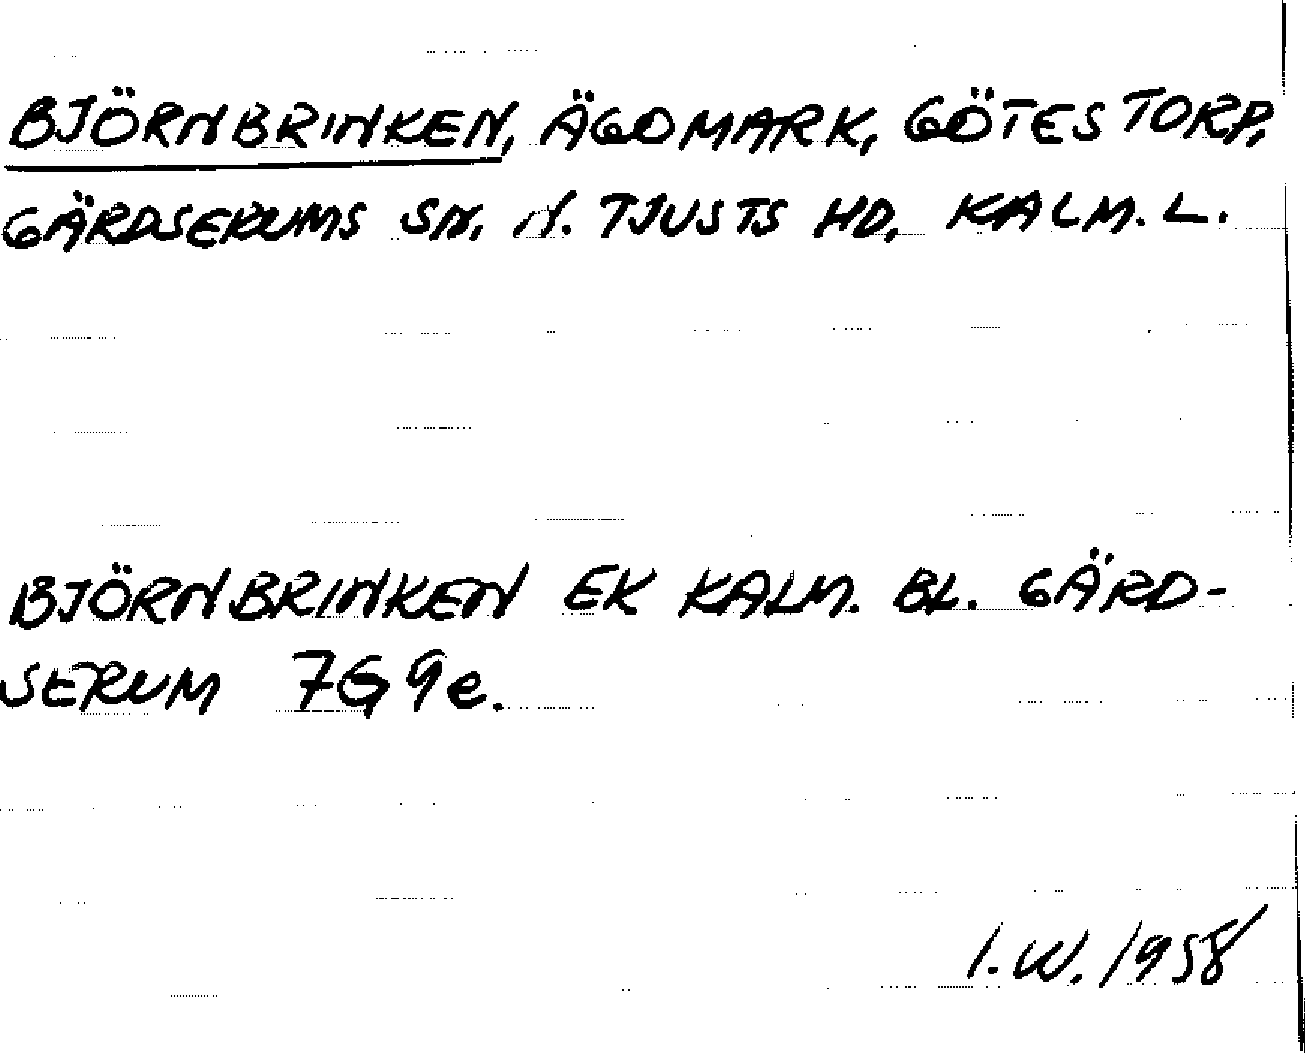 BJÖRNBRINKEN, ÄGOMARK, GÖTESTORP,
GÄRDSERUMS SN. N. TJUSTS HD, KALM. L.
BJÖRNBRINKEN EK KALM. BL. GÄRD-
SERUM 7G 9e.
I.W. 1958